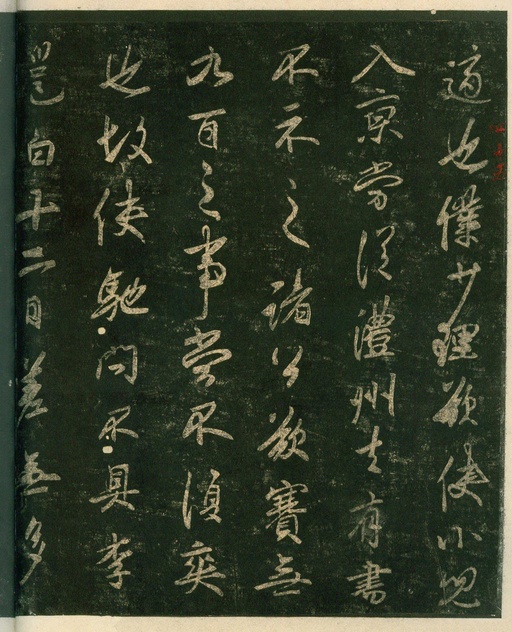 適也僕少理欲使小兒
入京當從澧州去有書
不示之諸公欲賽無
九百之事當不須爽
也故使馳問不具李
邕白十二月